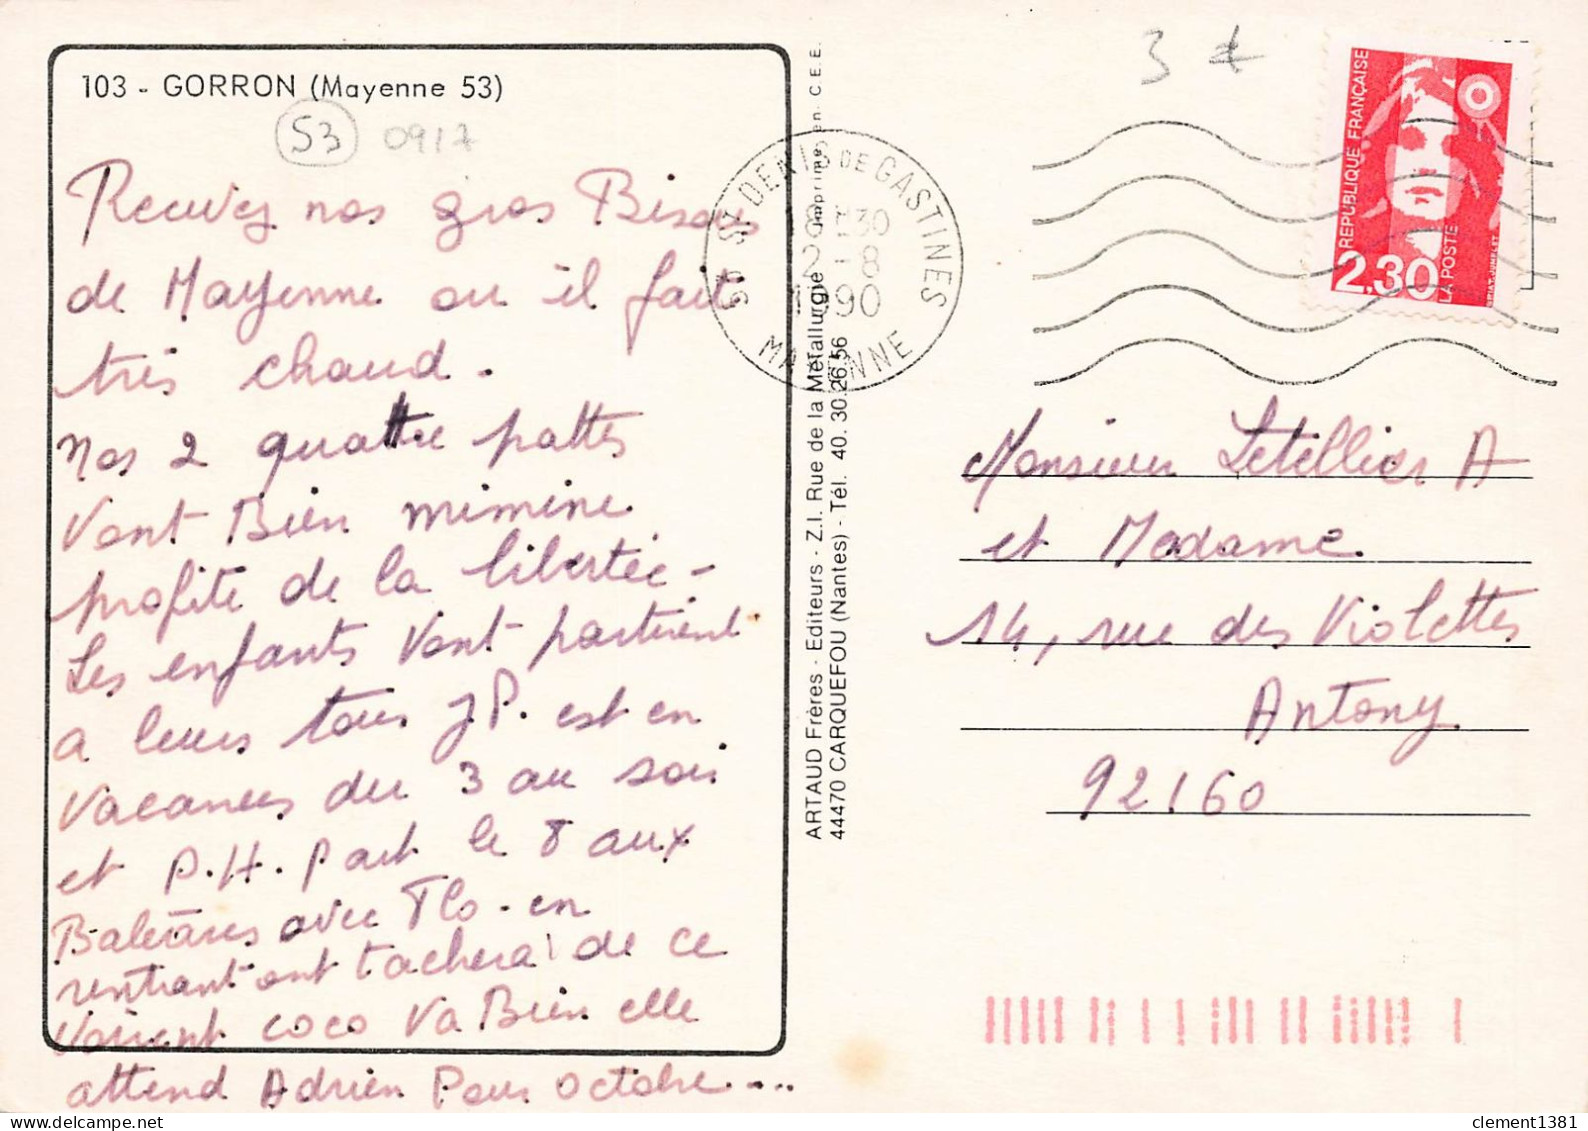 103 - GORRON (Mayenne 53)
53 0917
Recevez nos gros Bisous
de Mayenne ou il fait
très chaud.
Nos 2 quattre pattes
Vont Bien mimine
profite de la libertée -
Les enfants Vont partirent
a leurs tours JP. est en
Vacances du 3 au soir
et P.H. part le 8 aux
Baléares avec Flo - en
rentrant ont tachera de ce
Voirent coco Va Bien elle
attend Adrien Pour octobre....
ARTAUD Frères - Editeurs - Z.I. Rue de la Métallurgie Imprimé en C.E.E.
44470 CARQUEFOU (Nantes) - Tél. 40.30.26.56
53 ST DENIS DE GASTINES
18H30
2 - 8
1990
MAYENNE
3
RÉPUBLIQUE FRANÇAISE
2,30
LA POSTE
Monsieur Letellier A
et Madame
14, rue des Violettes
Antony
92160
clement1381